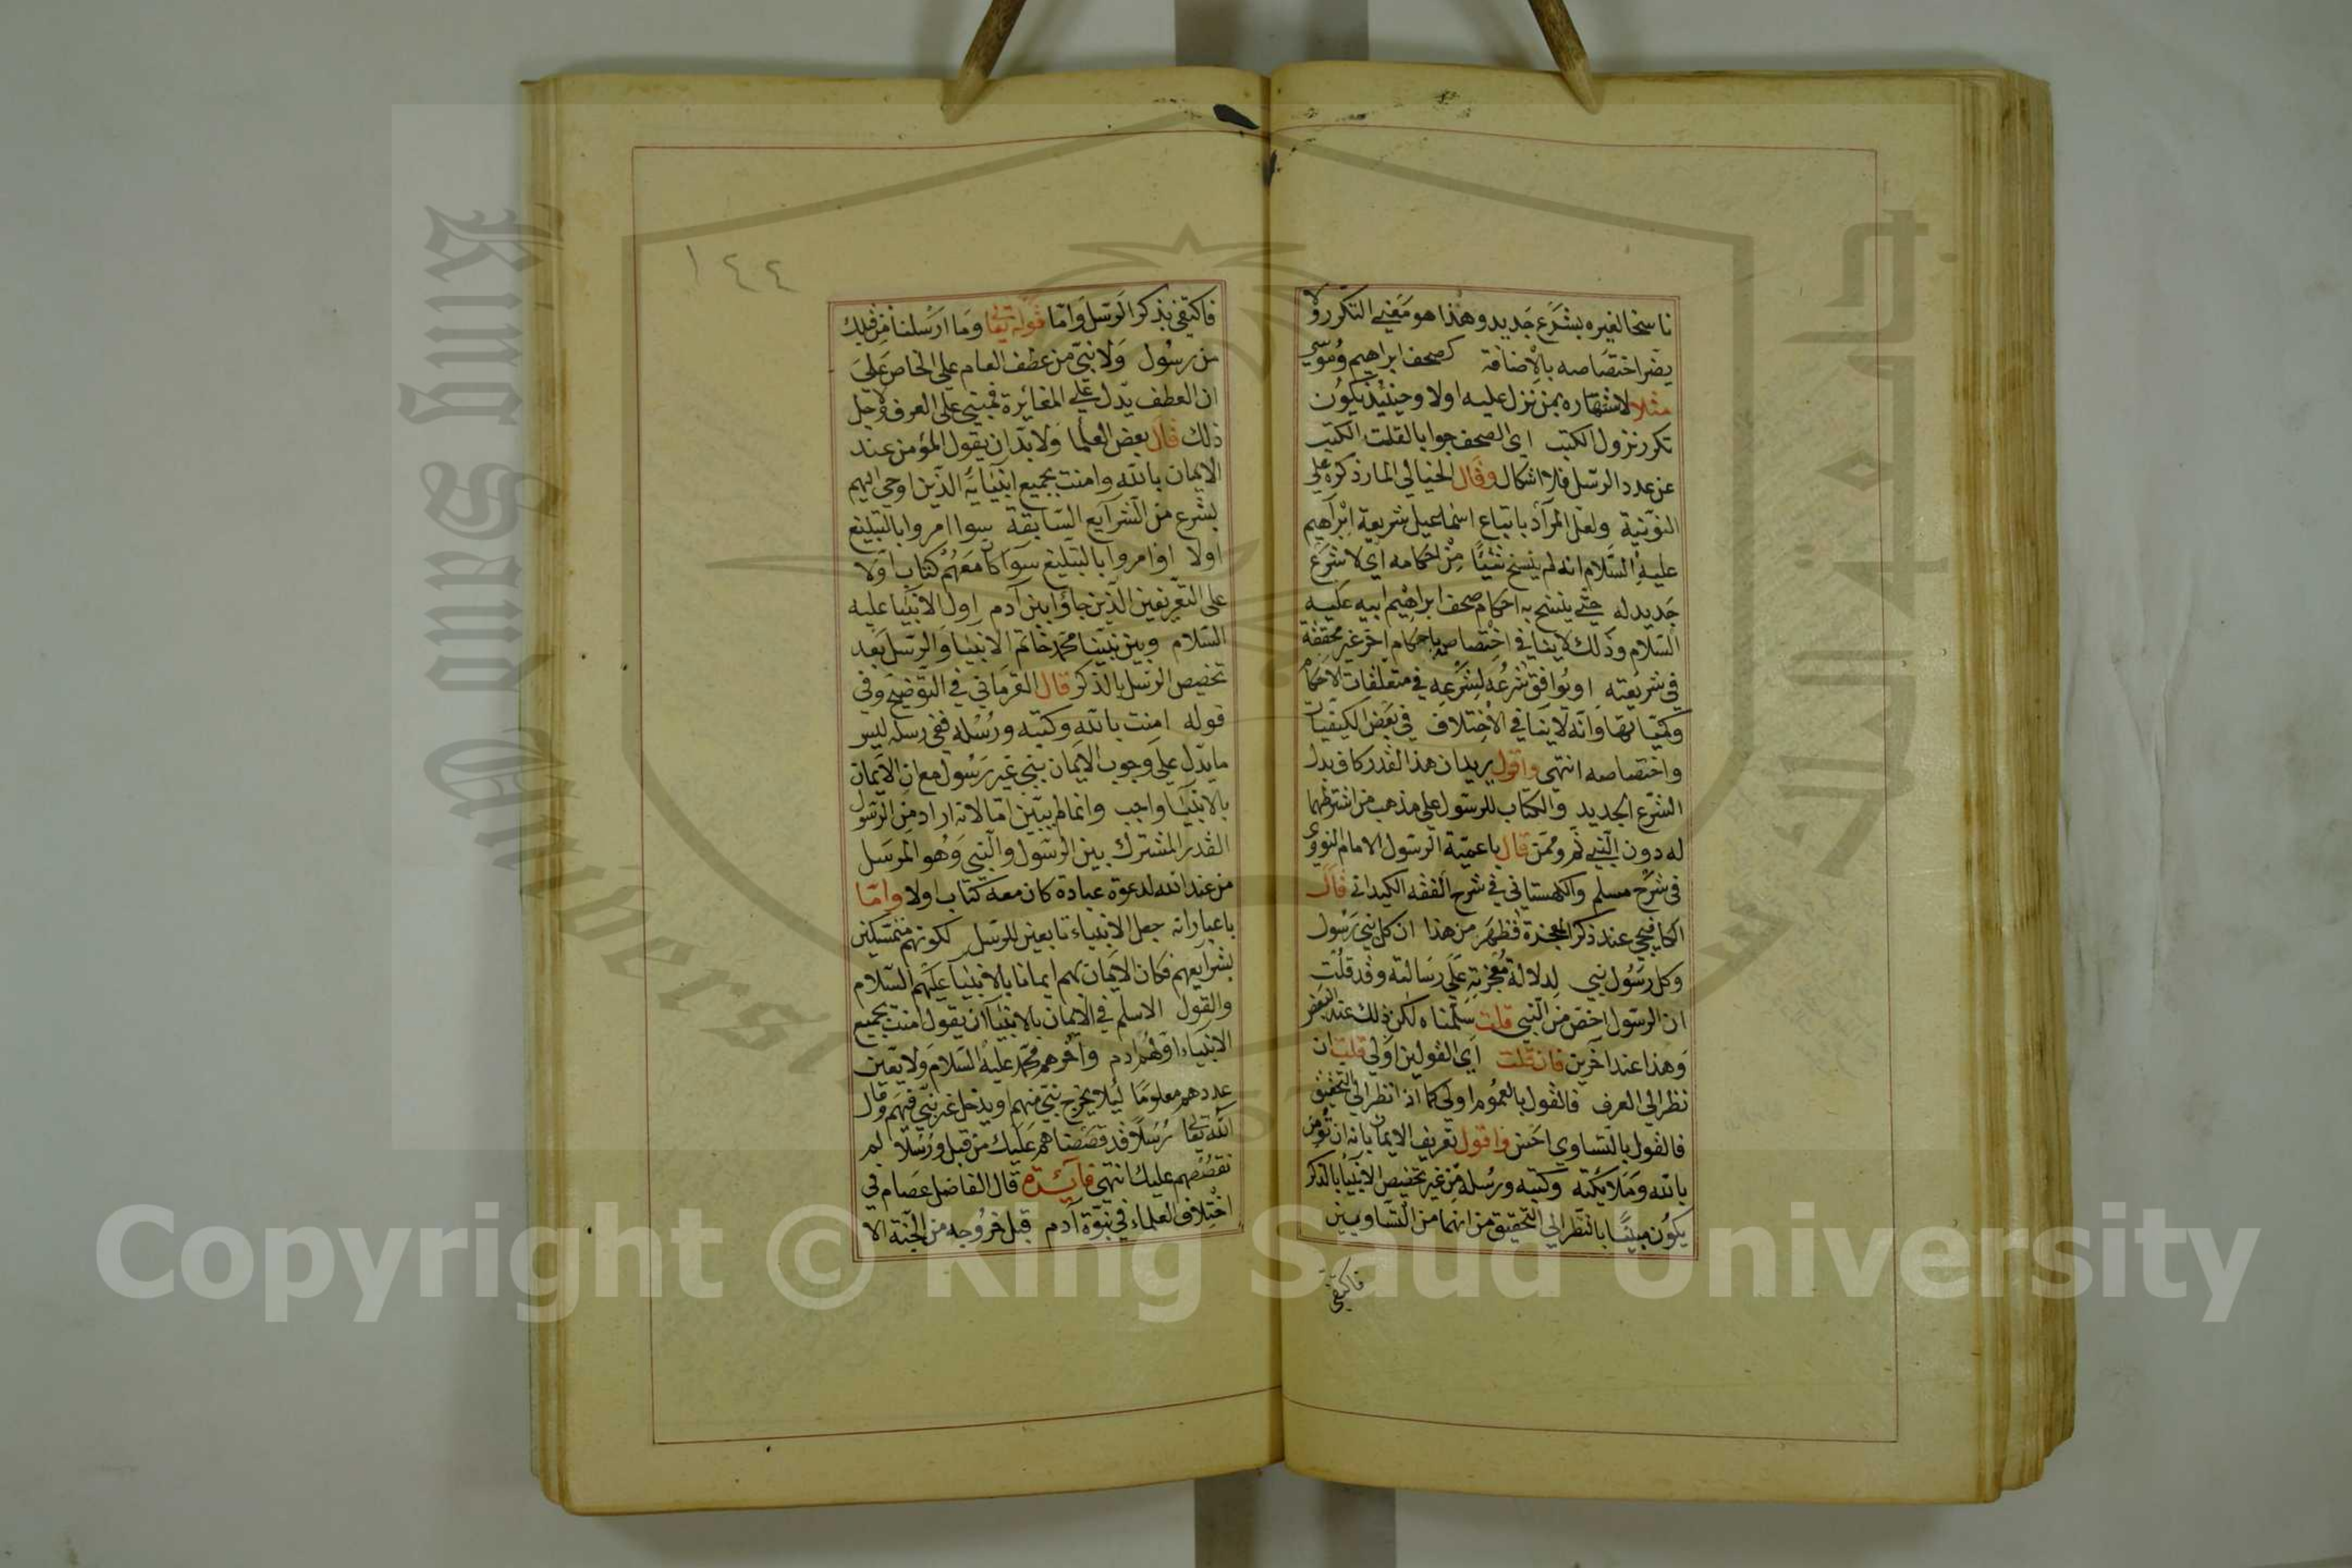 ناسخا لغيره بشرع جديد وهذا هو معني التكرر ولا
يضر اختصاصه بالإضافة كصحف ابراهيم وموسي
مثلا لاشتهاره بمن نزل عليه اولا وحينئذ يكون
تكرر نزول الكتب اي الصحف جوابا لقلت الكتب
عن عدد الرسل فلا اشكال وقال الخيالي المار ذكره علي
النونية ولعل المراد باتباع اسماعيل شريعة ابراهيم
عليه السلام انه لم ينسخ شيئا من احكامه اي لا شرع
جديد له حتي ينسخ به احكام صحف ابراهيم ابيه عليه
السلام وذلك لا ينافي اختصاصه باحكام اخر غير محققة
في شريعته او يوافق شرعه لشرعه في متعلقات الاحكام
وكميّاتها وانه لا ينافي الاختلاف في بعض الكيفيات
واختصاصه انتهي واقول يريد ان هذا القدر كاف بدل
الشرع الجديد والكتاب للرسول علي مذهب من اشترطهما
له دون النبي ثم وممن قال باعمية الرسول الامام النووي
في شرح مسلم والكهستاني في شرح الفقه الكيداني قال
الكافيجي عند ذكر المعجزة فظهر من هذا ان كل نبي رسول
وكل رسول نبي لدلالة معجزته علي رسالته وقد قلت
ان الرسول اخص من النبي قلت سلمناه لكن ذلك عند البعض
وهذا عند آخرين فان قلت اي القولين اولي قلت ان
نظر الي العرف فالقول بالعموم اولي كما اذا نظر الي التحقيق
فالقول بالتساوي احسن واقول تعريف الايمان بانه ان تؤمن
بالله وملائكته وكتبه ورسله من غير تخصيص الانبيا بالذكر
يكون مبنيا بالنظر الي التحقيق من انهما من التساويين
فاكتفي
١٤٤
فاكتفي بذكر الرسل واما قوله تعالي وما ارسلنا من قبلك
من رسول ولا نبي من عطف العام علي الخاص علي
ان العطف يدل علي المغائرة فمبني علي العرف ولاجل
ذلك قال بعض العلما ولا بد ان يقول المؤمن عند
الايمان بالله وامنت بجميع انبيائه الذين اوحي اليهم
بشرع من الشرايع السابقة سوا امروا بالتبليغ
اولا او امروا بالتبليغ سوآ كان معهم كتاب اولا
علي التعريفين الذين جاؤا بين آدم اول الانبيا عليه
السلام وبين نبينا محمد خاتم الانبيا والرسل بعد
تخصيص الرسل بالذكر قال القرماني في التوضيح وفي
قوله امنت بالله وكتبه ورسله ففي رسله ليس
ما يدل علي وجوب الايمان بنبي غير رسول مع ان الايمان
بالانبيا واجب وانما لم يبين اما لانه اراد من الرسول
القدر المشترك بين الرسول والنبي وهو المرسل
من عند الله لدعوة عبادة كان معه كتاب اولا واما
باعتبارانه جعل الانبياء تابعين للرسل لكونهم متمسكين
بشرايعهم فكان الايمان بهم ايمانا بالانبيا عليهم السلام
والقول الاسلم في الايمان بالانبيا ان يقول امنت بجميع
الانبياء اولهم ادم وآخرهم محمد عليه السلام ولا يعين
عددهم معلوما ليلا يخرج نبي منهم او يدخل غير نبي فيهم وقال
الله تعالي رسلا قد قصصناهم عليك من قبل ورسلا لم
نقصصهم عليك انتهي فآئدة قال الفاضل عصام في
اختلاف العلماء في نبوة آدم قبل خروجه من الجنة الا
King Saud University
Copyright © King Saud University